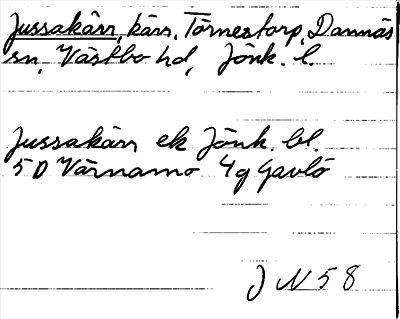 Jussakärr, kärr, Törnestorp, Dannäs
sn, Västbo hd, Jönk. l.
Jussakärr ek Jönk. bl.
5 D Värnamo 4g Gavlö
J N 58